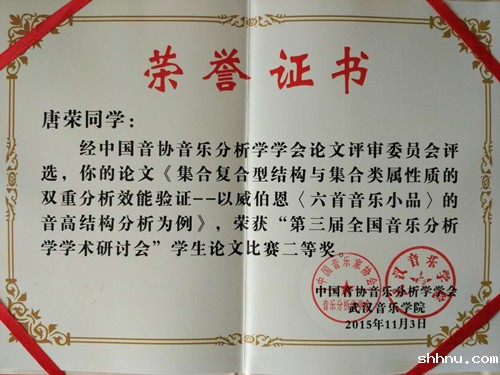 荣誉证书
唐荣同学：
经中国音协音乐分析学学会论文评审委员会评
选，你的论文《集合复合型结构与集合类属性质的
双重分析效能验证--以威伯恩〈六首音乐小品〉的
音高结构分析为例》，荣获“第三届全国音乐分析
学学术研讨会”学生论文比赛二等奖。
中国音乐家协会
音乐分析学学会
武汉音乐学院
中国音协音乐分析学学会
武汉音乐学院
2015年11月3日
shhnu.com